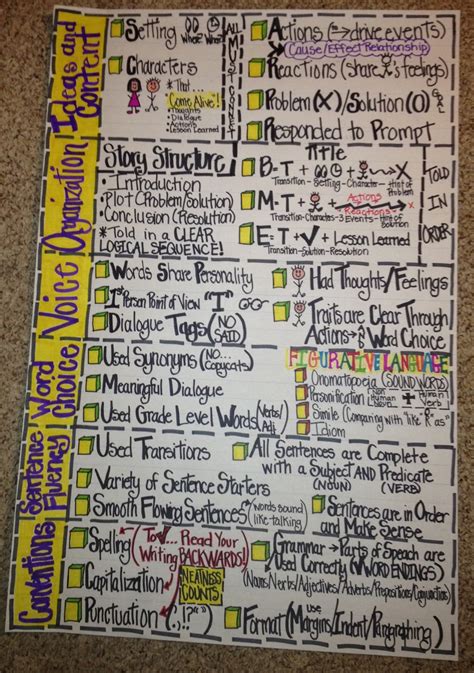 Ideas and Content
Setting Where? When?
Characters
* That...
Come Alive!
• Thoughts
• Dialogue
• Actions
• Lesson Learned
ALL MUST CONNECT
Actions (→drive events)
(Cause/Effect Relationship)
Reactions (share 's feelings)
Problem (X)/Solution (O)
Responded to Prompt
Organization
Story Structure
• Introduction
• Plot (Problem/Solution)
• Conclusion (Resolution)
* Told in a CLEAR
LOGICAL SEQUENCE!
Title
B-T + + → X
Transition-Setting-Character-Hint of Problem
M-T + Actions Reactions → X
Transition-Character-3 Events-Hint of Solution
E-T + ✓ + Lesson Learned
Transition-Solution-Resolution
TOLD IN ORDER
Voice
Words Share Personality
1st Person Point of View "I"
Dialogue Tags (NO SAID)
Had Thoughts/Feelings
Traits are Clear Through
Actions → Word Choice
Word Choice
Used Synonyms (NO... Copycats)
Meaningful Dialogue
Used Grade Level Words (Verbs/Adj.
FIGURATIVE LANGUAGE
Onomatopoeia (SOUND WORDS)
Personification (Non Human Noun + Human Verb
Simile (Comparing with "like" & "as")
Idiom
Sentence Fluency
Used Transitions
Variety of Sentence Starters
Smooth Flowing Sentences (words sound like talking)
All Sentences are Complete
with a Subject AND Predicate
(NOUN) (VERB)
Sentences are in Order
and Make Sense
Conventions
Spelling (To ✓... Read Your
Writing BACKWARDS!)
Capitalization
NEATNESS COUNTS
Punctuation (.,!?")
Grammar → Parts of Speach are
Used Correctly (WORD ENDINGS)
(Nouns/Verbs/Adjectives/Adverbs/Prepositions/Conjunction)
Format (use Margins/Indent/Paragraphing)